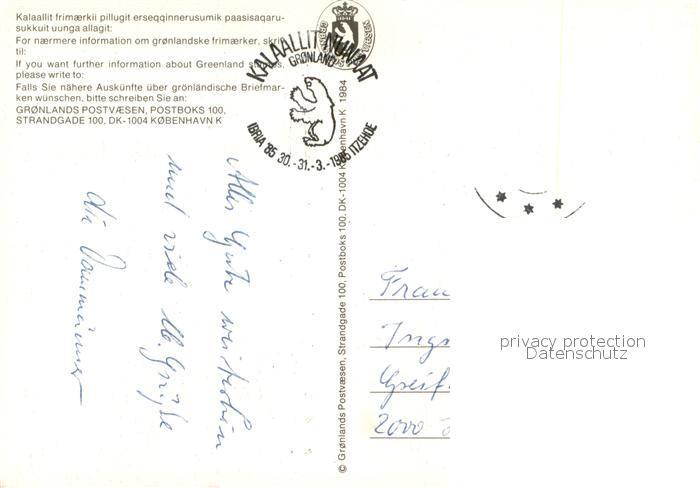 Kalaallit frimærkii pillugit erseqqinnerusumik paasisaqaru-
sukkuit uunga allagit:
For nærmere information om grønlandske frimærker, skriv
til:
If you want further information about Greenland stamps,
please write to:
Falls Sie nähere Auskünfte über grönländische Briefmar-
ken wünschen, bitte schreiben Sie an:
GRØNLANDS POSTVÆSEN, POSTBOKS 100,
STRANDGADE 100, DK-1004 KØBENHAVN K
KALAALLIT NUNAAT
GRØNLAND
IBRIA '85 30.-31.-3.-1985 ITZEHOE
© Grønlands Postvæsen, Strandgade 100, Postboks 100, DK-1004 København K 1984
Alles Gute weiterhin
und viele lb. Grüße
die
Frau
Ingr
Greif.
2000
privacy protection
Datenschutz